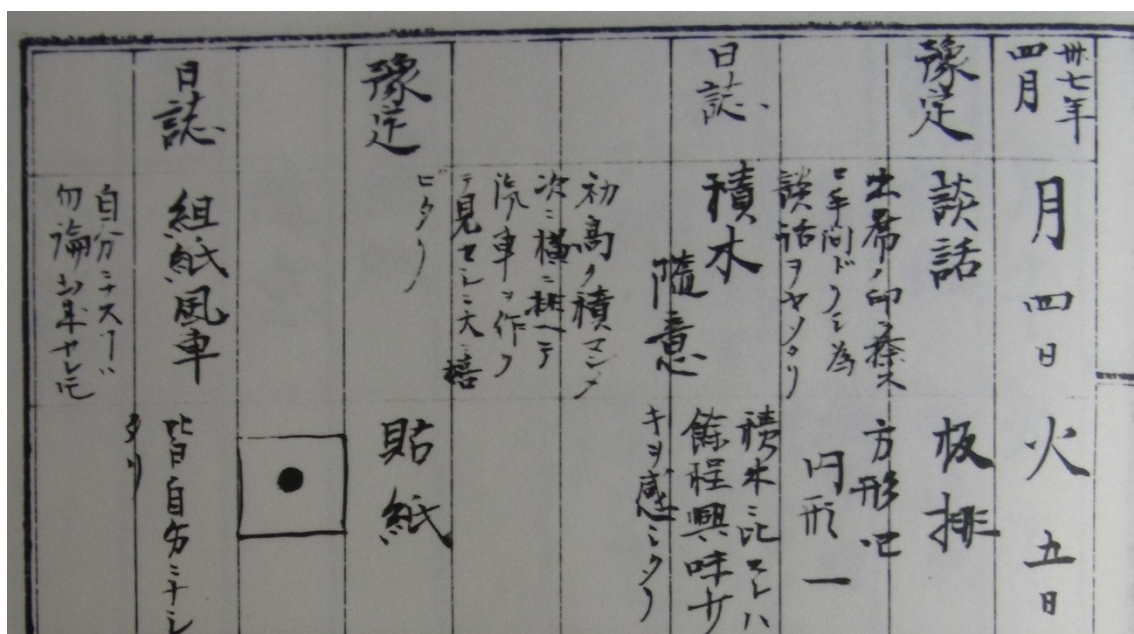 卅七年
四月
月 四日
火 五日
豫定
談話
板排
出席ノ印ヲ捺ス
方形 四
円形 一
談話ヲヤメタリ
日誌
積木
隨意
積木ニ比スレハ
餘程興味ナ
キヲ感ジタリ
初高ク積マシメ
次ニ横ニ排ヘテ
汽車ヲ作リ
テ見セシニ大ニ喜
ビタリ
豫定
貼紙
日誌
組紙風車
皆自分ニナシ
タリ
自分ニテスルハ
勿論出来ヤレ𪜈